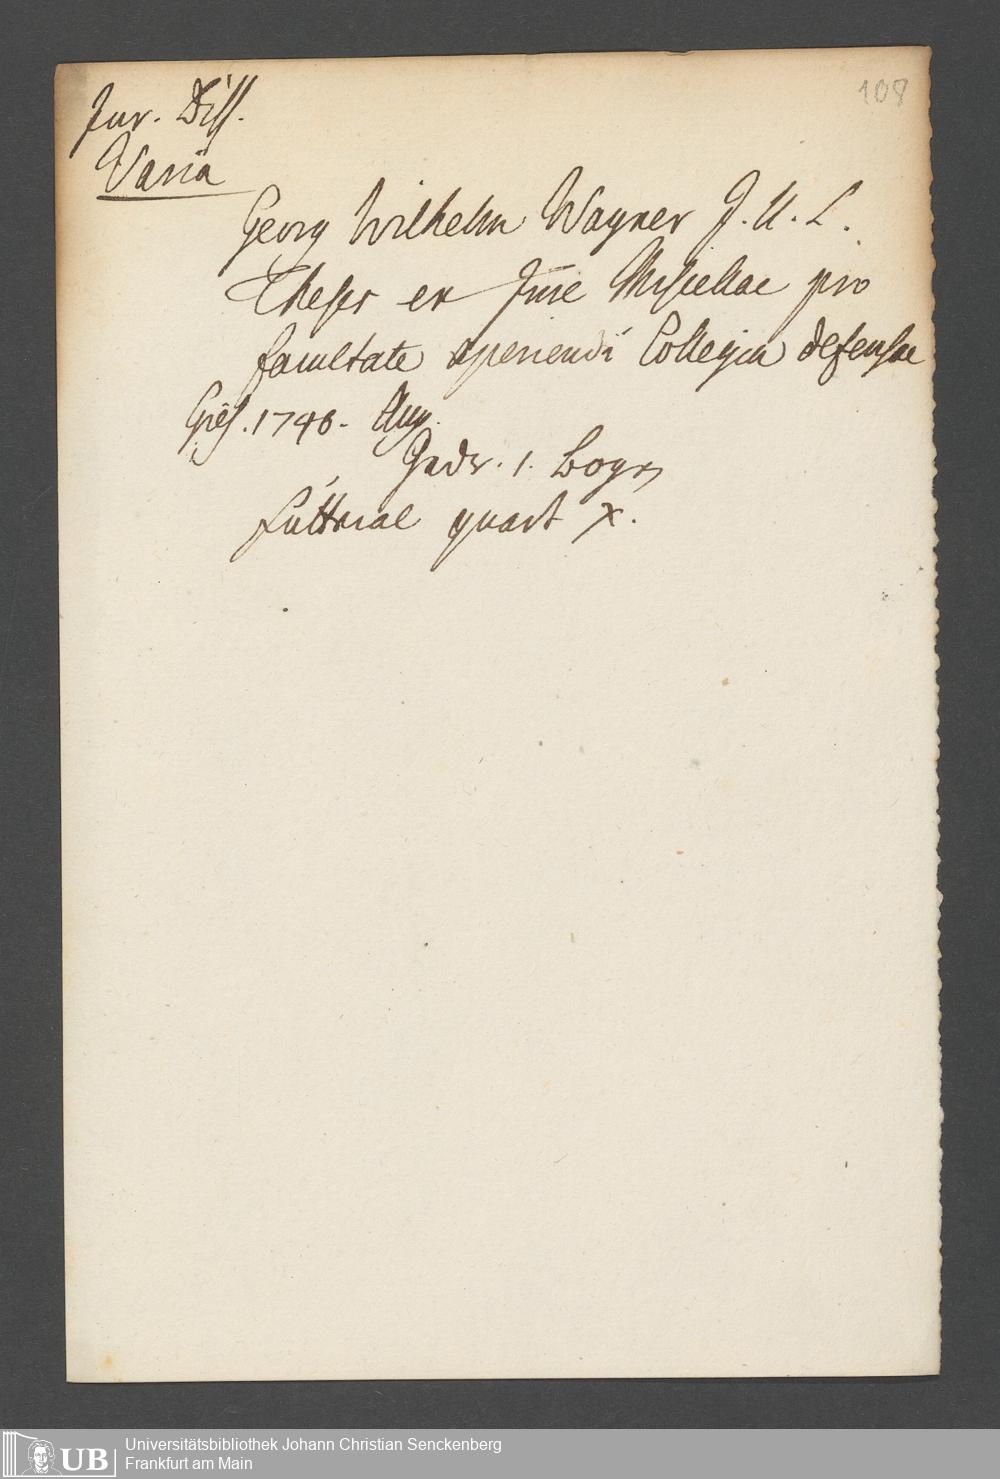 108
Jur. Diss.
Varia
Georg Wilhelm Wagner J. U. L.
Theses ex Jure Miscellae pro
facultate aperiendi Collegia defensae
Gies. 1748. Aug.
Gedr. 1. Bogn
futteral quart X.
UB Universitätsbibliothek Johann Christian Senckenberg
Frankfurt am Main